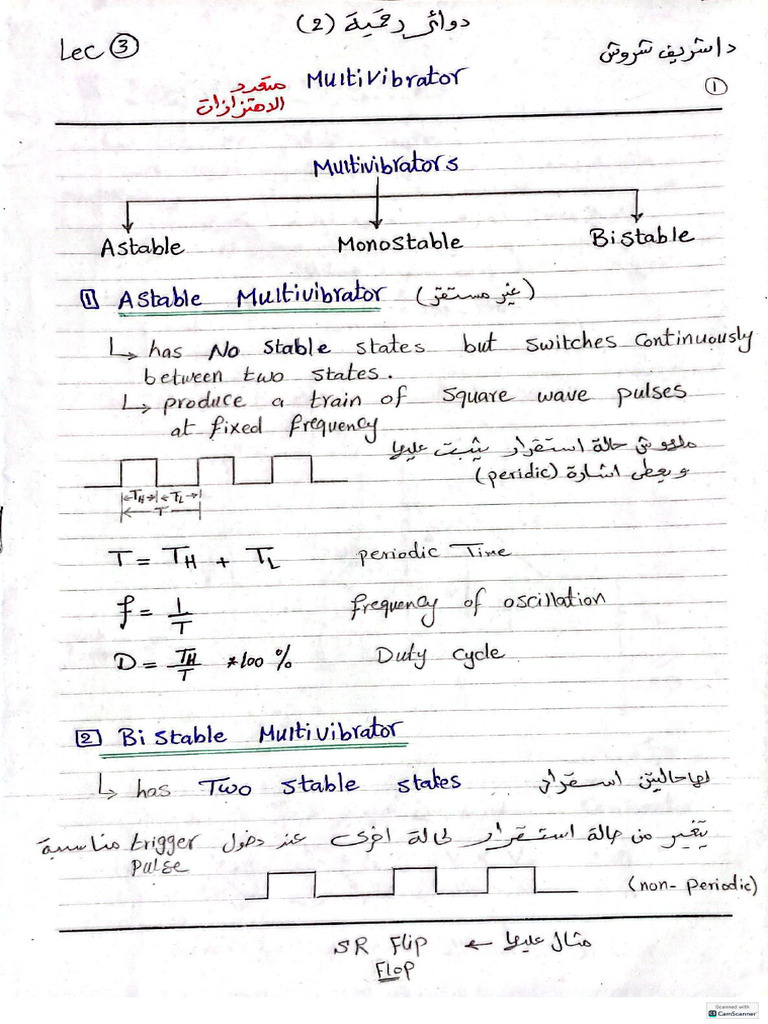 دوائر رقمية (2)
Lec 3
د/شريف شروش
Multivibrator متعدد الاهتزازات
1
Multivibrators
Astable Monostable Bistable
1 Astable Multivibrator (غير مستقر)
↳ has No stable states but switches continuously
between two states.
↳ produce a train of square wave pulses
at fixed frequency
ملهوش حالة استقرار يثبت عليها
و يعطى اشارة (peridic)
TH TL
T
T = TH + TL periodic Time
f = 1/T frequency of oscillation
D = TH/T *100 % Duty cycle
2 Bistable Multivibrator
↳ has Two stable states لها حالتين استقرار
يتغير من حالة استقرار لحالة اخرى عند دخول trigger pulse مناسبة
(non-periodic)
مثال عليها ← SR Flip
Flop
Scanned with
CS CamScanner